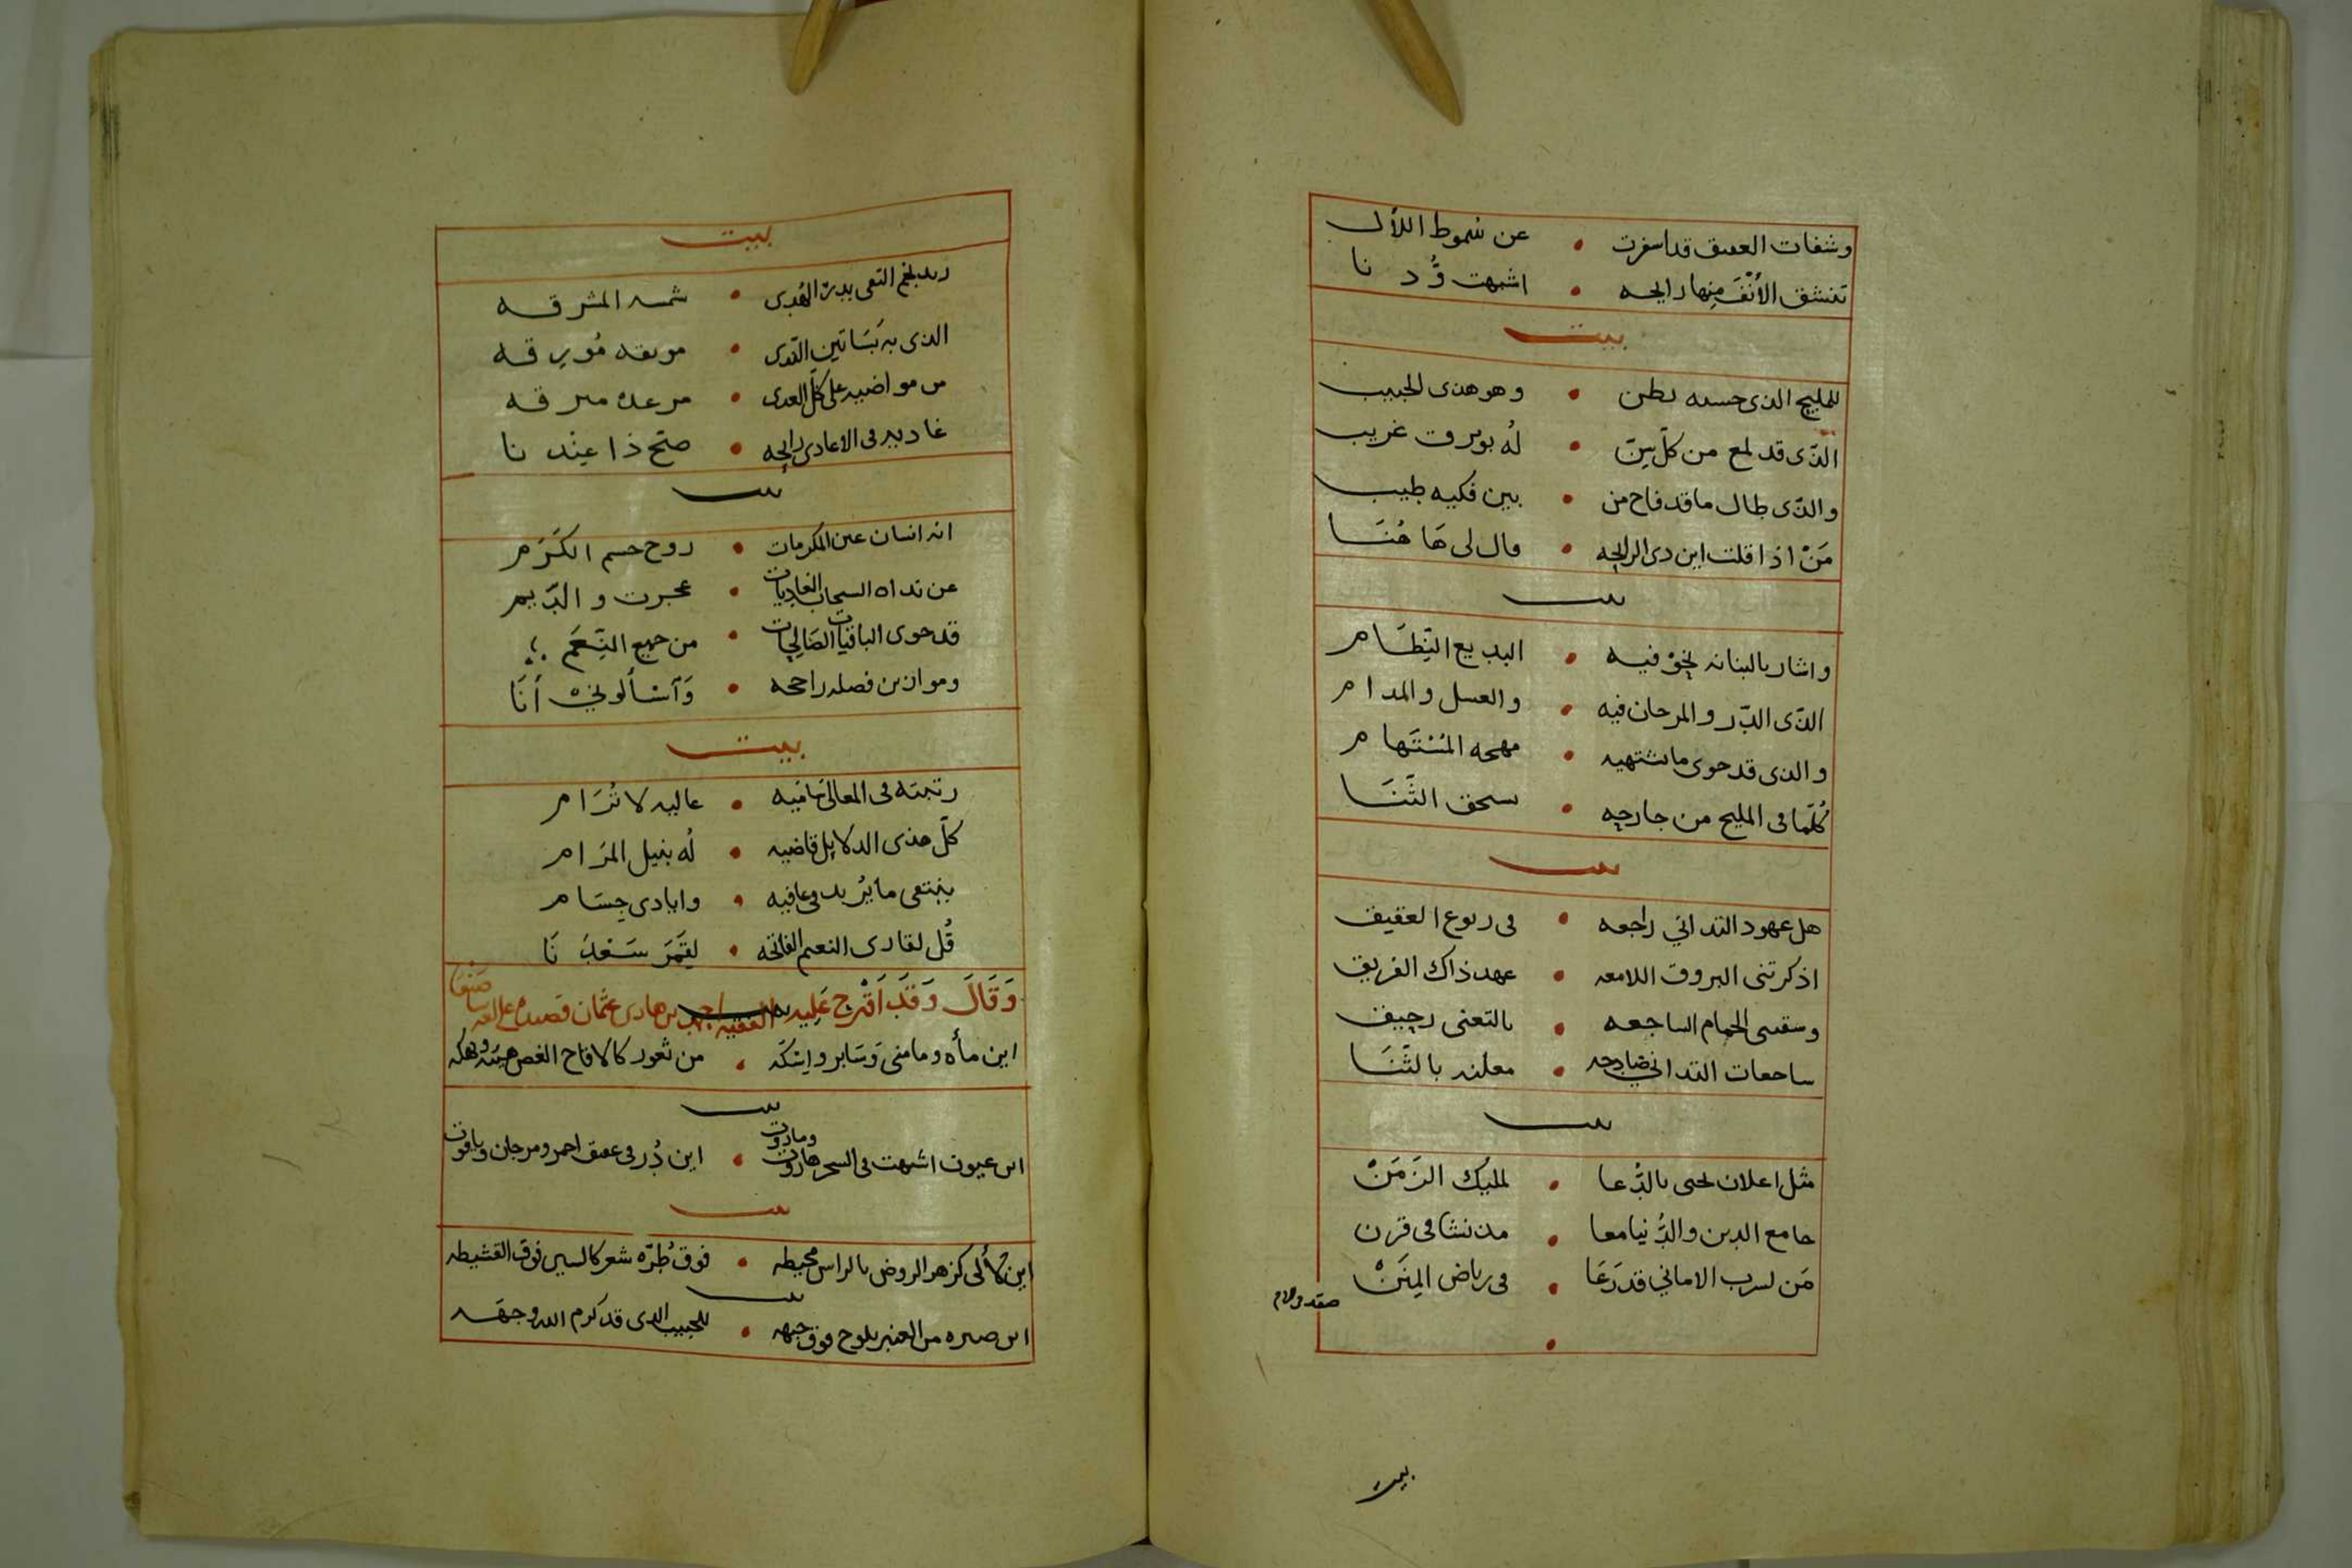 وشفات العسق قد اسفرت • عن سموط اللأل
تنشق الأنف منها رايحه • اشبهت وُدنا
بيت
للمليح الذى حسنه بطن • وهو هذى الحبيب
الذّى قد لمع من كلّ سِنّ • لُه بروق غريب
والذّى طال ما قد فاح من • بين فكيه طيب
مَنْ اذا قلت اين دى الرايحه • قال لى هَا هُنَا
بيت
واشار بالبنانه نحوْ فيه • البديع النِّظَام
الذّى الدّر والمرجان فيه • والعسل والمدام
والذى قد حوى ما تشتهيه • مهجه المُسْتَهام
كُلّما فى المليح من جارحه • سحق الثَّنَا
بيت
هل عهود التدانى راجعه • فى ربوع العقيق
اذكرتنى البروق اللامعه • عهد ذاك الفريق
الحمام الساجعه • بالتغنى رحيق
ساجعات التدانى صادحه • معلنه بالثَّنَا
بيت
مثل اعلان لحنى بالدُّعا • لمليك الزَمَنْ
جامع الدين والدُّنيا معا • مذ نشا فى قرن
مَن لسرب الامانى قد رَعَا • فى رياض المِنَنْ
بيت
بيت
بنجم التقى بدر الهُدى • شمسه المشرقه
الذى به بَسَاتين النّدى • مونقه مُورقه
من مواضيه على كلّ العدى • مرعده مبرقه
غاديه فى الاعادى رايحه • صَحّ ذا عِنْدنا
بيت
انه انسان عين المكرمات • روح جسم الكَرَم
عن نداه السحاب الغاديات • عجزت والدّيم
قد حوى الباقيات الصَالِحات • من جميع النِّعَم
وموازين فضله راجحه • وَآسْألونى أنَا
بيت
رتبته فى المعالى نافيه • عاليه لا تُرَام
كلّ هذى الدلايل قاضيه • لُه بنيل المرَام
ينبغى ما يُريد فى عافيه • وايادى جِسَام
قُل لقارى النعيم الفاتحه • لِقَمَر سَعْدِنَا
وَقَالَ وَقَد اَقْترح عَلِيه الفقيه بن هادى عثمان قصيده على
اين مأه وما منى وَسَابر وايتكه • من ثغور كالاقاح الغض
بيت
اين عيون اشبهت فى السحر هاروت وماروت • اين دُر فى عقيق احمر ومرجان وياقوت
بيت
اين لآلى كزهر الروض بالراس محيطه • فوق طُرّه شعر كالسير فوق القشيطه
بيت
اين صبره من العنبر يلوح فوق جبهه • للحبيب الذى قد كرم الله وجهَه